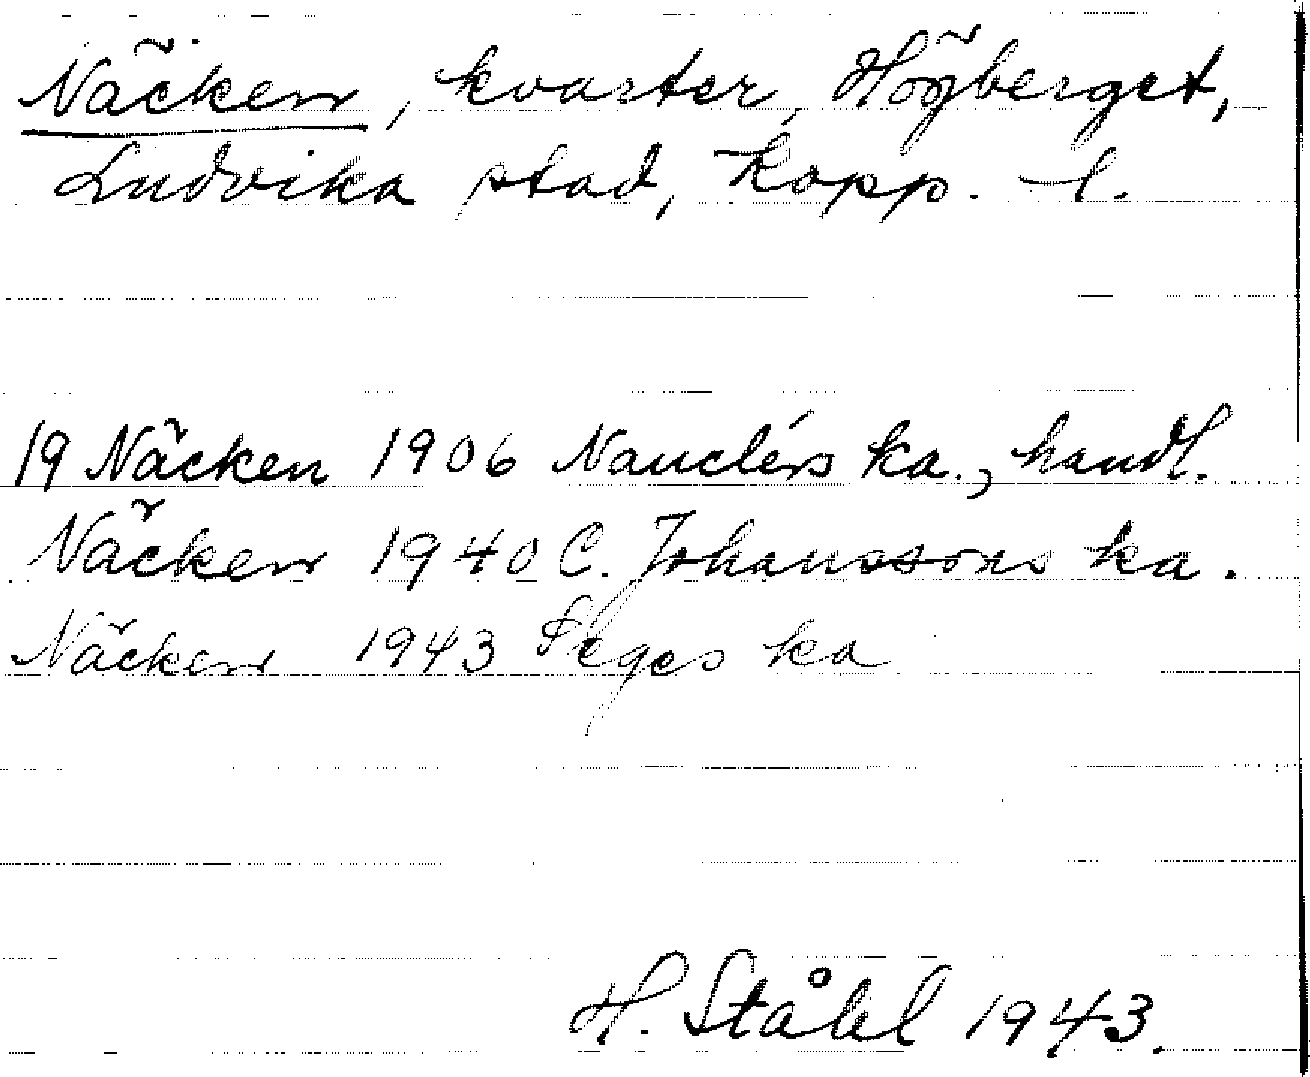 Näcken, kvarter, Högberget,
Ludvika stad, Kopp. l.
19 Näcken 1906 Nauclérs ka., handl.
Näcken 1940 C. Johanssons ka.
Näcken 1943 Peges ka
H. Ståhl 1943.